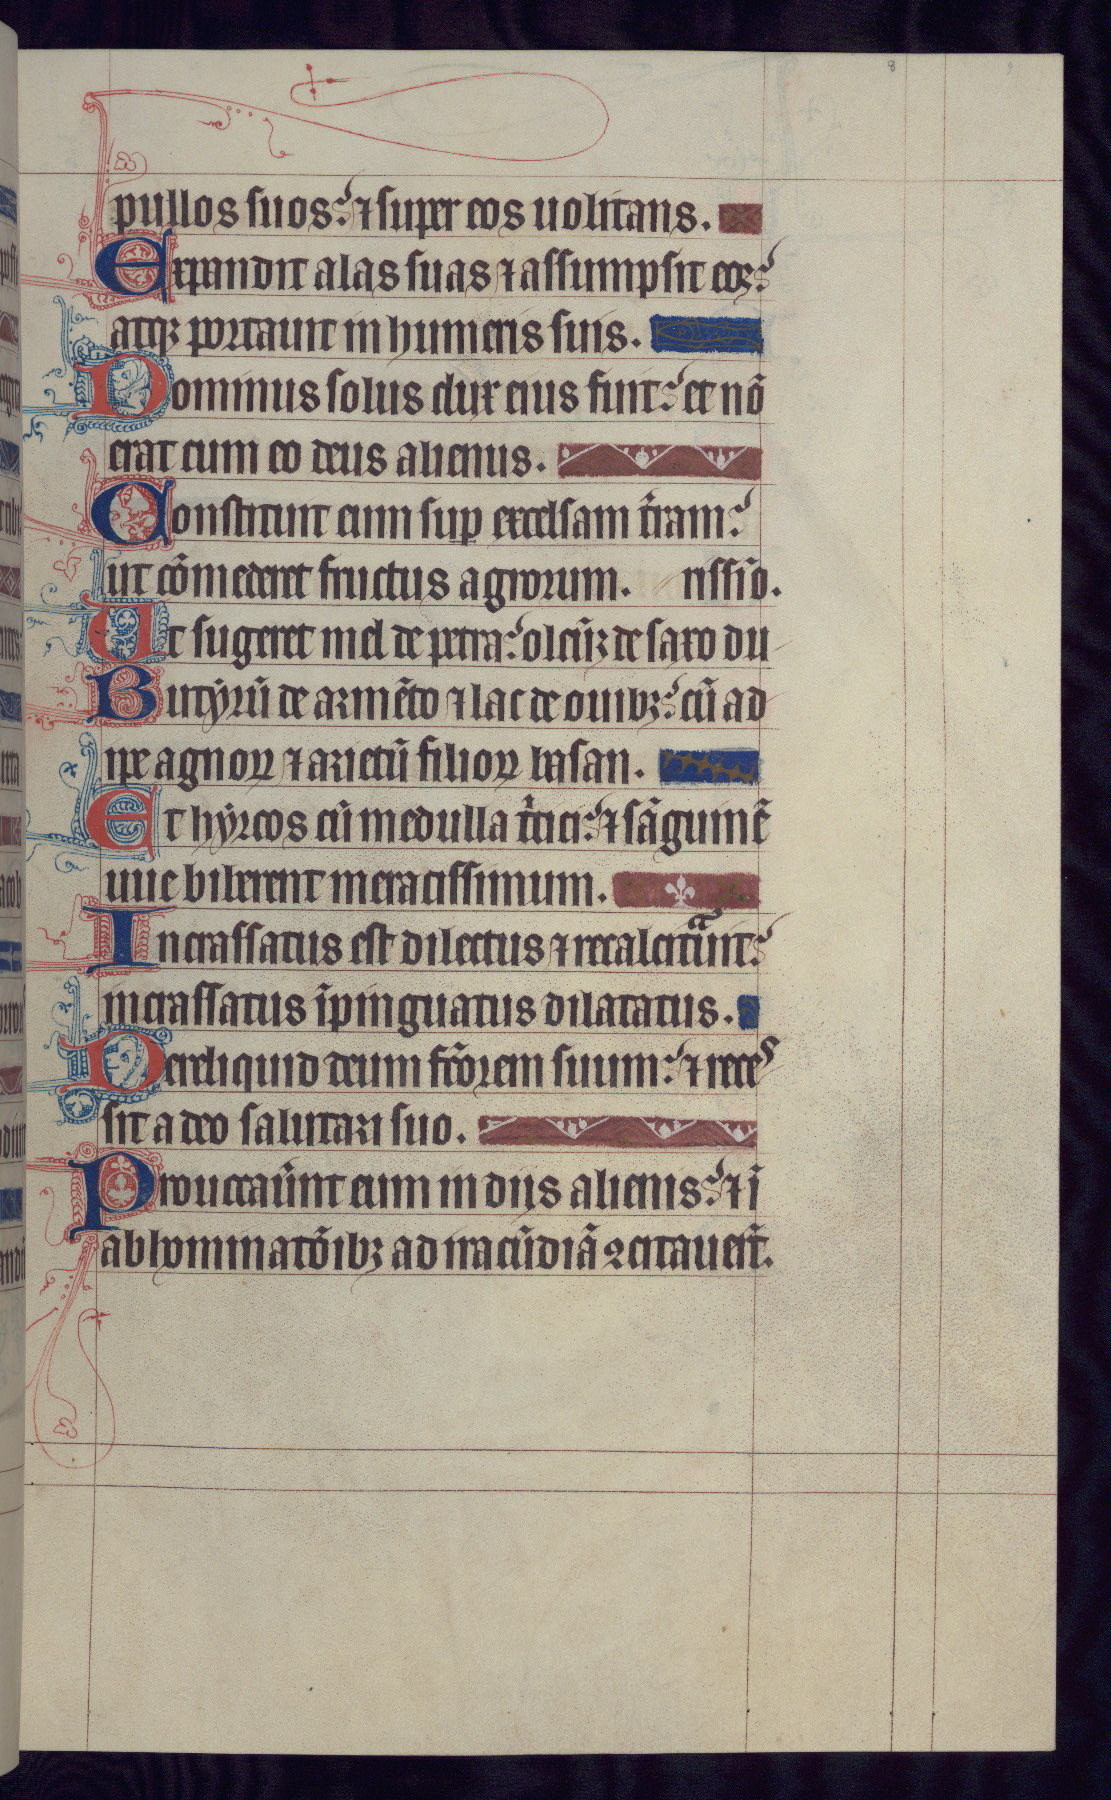 8
pullos suos: ⁊ super eos uolitans.
Expandit alas suas ⁊ assumpsit eoꝝ:
atqꝫ portauit in humeris suis.
Dominus solus dux eius fuit: et nō
erat cum eo deus alienus.
Constituit eum suꝑ excelsam t̄ram:
ut cōmederet fructus agrorum. rissīo.
Ut sugeret mel de petra: oleūꝫ de saxo du
Butẏrū de armēto ⁊ lac de ouibꝫ: cū ad
ipe agnoꝝ ⁊ arietū filioꝝ basan.
Et hẏrcos cū medulla t̄tici: ⁊ sāguinē
uue biberent meracissimum.
Incrassatus est dilectus ⁊ recalcitᷓuit:
incrassatus īpinguatus dilatatus.
Dereliquid deum fc̄orem suum: ⁊ reces
sit a deo salutari suo.
Prouocaūnt eum in diis alienis: ⁊ ī
abhominatōibꝫ ad iracūdiā ꝯcitauer̄t.